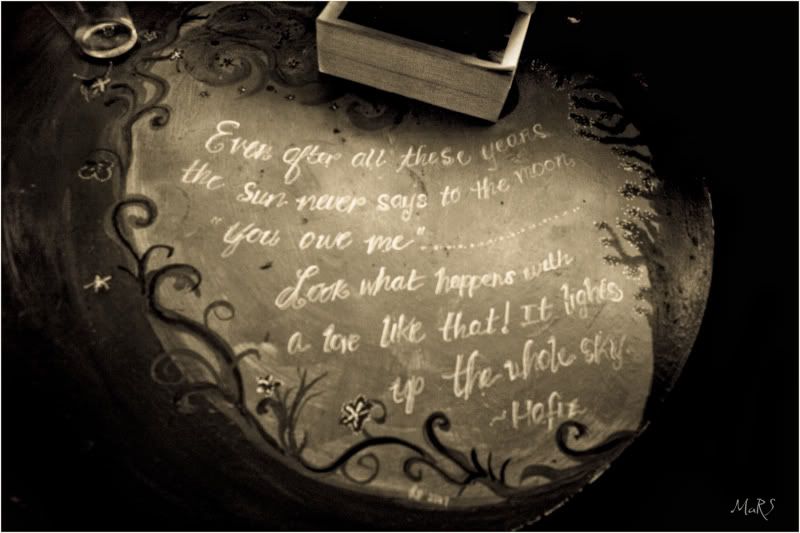 Even after all these years
the Sun never says to the moon,
"You owe me"....................
Look what happens with
a love like that! It lights
up the whole sky.
~Hafiz
MaRS